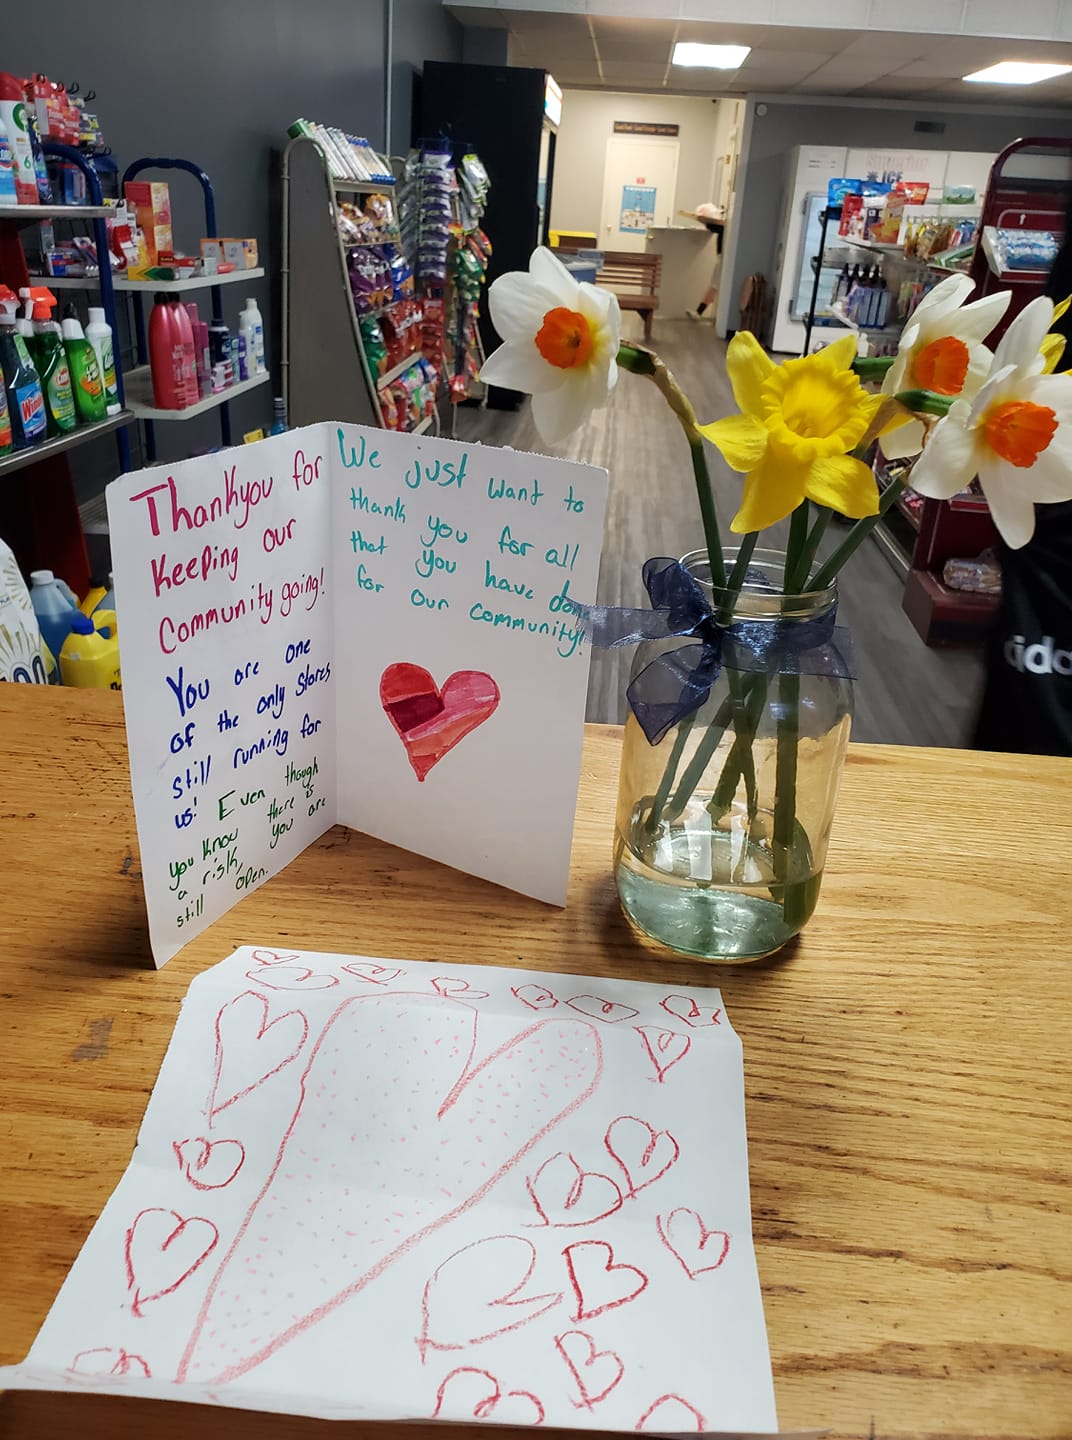 Thankyou for
Keeping our
Community going!
You are one
of the only stores
still running for
us! Even though
you know there is
a risk, you are
still open.
We just want to
thank you for all
that you have don
for our community!
ICE